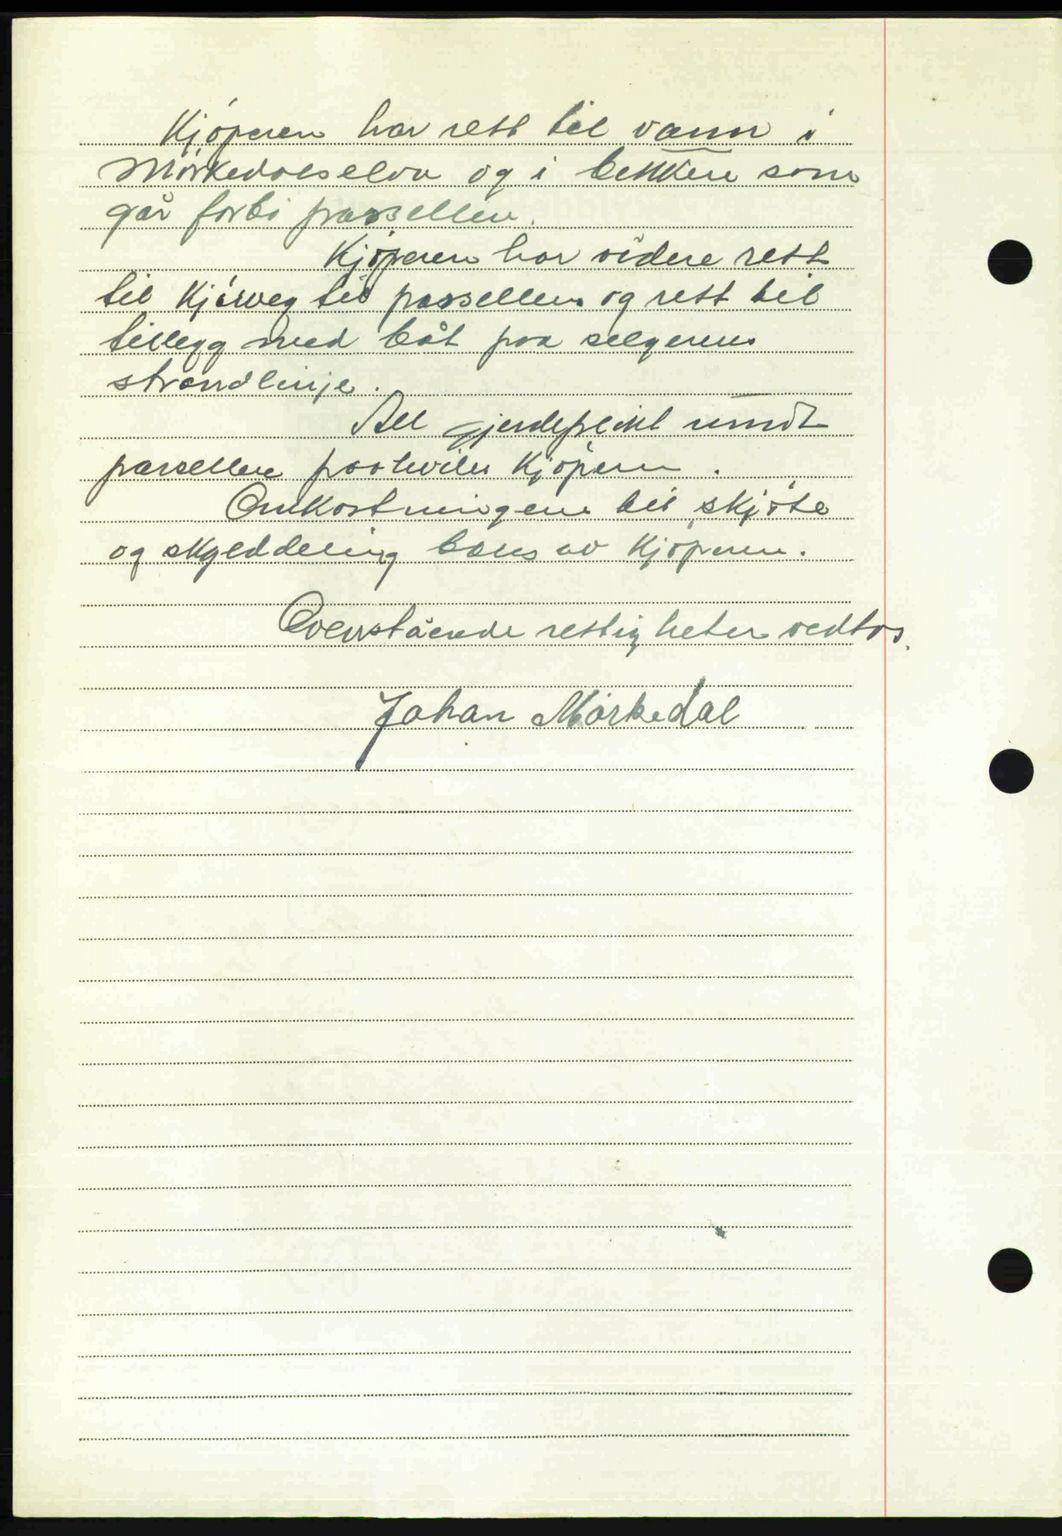 Kjøperen har rett til vann i
Mørkedalselva og i bekken som
går forbi parsellen.
Kjøperen har videre rett
til Kjørveg til parsellen og rett til
tillegg med båt paa selgerens
strandlinje.
All gjerdeplikt rundt
parsellen paahviler Kjøperen.
Omkostningene til skjøte
og skylddeling bæres av Kjøperen.
Ovenstående rettigheter vedtas.
Johan Mørkedal